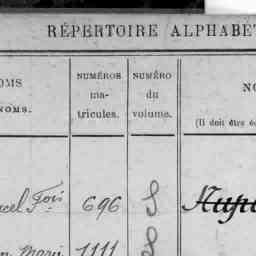 RÉPERTOIRE ALPHABET
OMS
NOMS.
NUMÉROS
ma-
tricules.
NUMÉRO
du
volume.
NO
(Il doit être é
cel Fois 696 8
Marie 1111 8